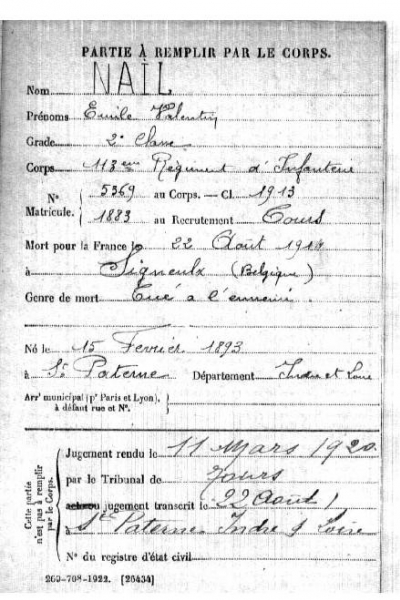 PARTIE À REMPLIR PAR LE CORPS.
Nom NAIL
Prénoms Emile Valentin
Grade 2e Classe
Corps 113eme Régiment d'Infanterie
N° Matricule. { 5369 au Corps. — Cl. 1913
1883 au Recrutement Tours
Mort pour la France le 22 Août 1914
à Signeulx (Belgique)
Genre de mort Tué à l'ennemi
Né le 15 Fevrier 1893
à St Paterne Département Indre et Loire
Arrt municipal (pr Paris et Lyon), à défaut rue et N°.
Cette partie n'est pas à remplir par le Corps.
Jugement rendu le 11 Mars 1920
par le Tribunal de Tours
jugement transcrit le 22 Aout
à St Paterne Indre & Loire
N° du registre d'état civil
260-708-1922. [26434]